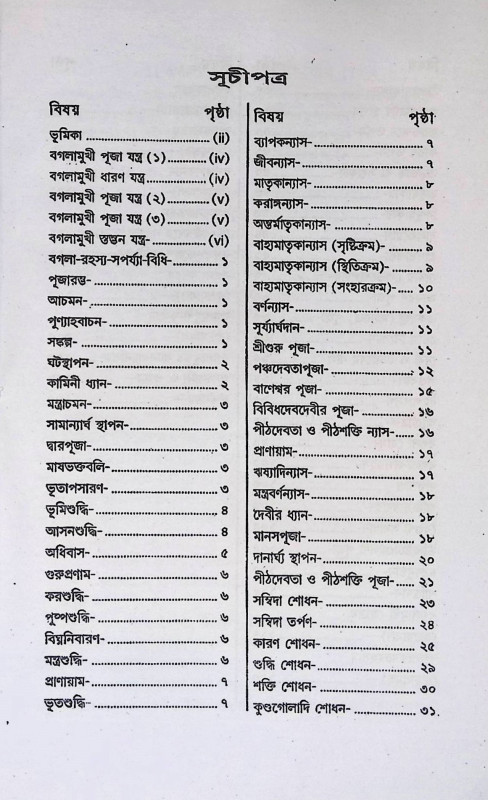 সূচীপত্র
বিষয় পৃষ্ঠা
ভূমিকা ........................ (ii)
বগলামুখী পূজা যন্ত্র (১) ............ (iv)
বগলামুখী ধারণ যন্ত্র ................ (iv)
বগলামুখী পূজা যন্ত্র (২) ............ (v)
বগলামুখী পূজা যন্ত্র (৩) ............ (v)
বগলামুখী স্তম্ভন যন্ত্র- ............ (vi)
বগলা-রহস্য-সপর্য্যা-বিধি- ........ ১
পূজারম্ভ- ........................ ১
আচমন- ........................ ১
পূণ্যাহবাচন- .................... ১
সঙ্কল্প- ........................ ১
ঘটস্থাপন- ...................... ২
কামিনী ধ্যান- .................. ২
মন্ত্রাচমন- ...................... ৩
সামান্যার্ঘ স্থাপন- .............. ৩
দ্বারপূজা- ...................... ৩
মাষভক্তবলি- .................. ৩
ভূতাপসারণ- .................. ৩
ভূমিশুদ্ধি- ...................... ৪
আসনশুদ্ধি- .................... ৪
অধিবাস- ...................... ৫
গুরুপ্রণাম- .................... ৬
করশুদ্ধি- ...................... ৬
পুষ্পশুদ্ধি- .................... ৬
বিঘ্ননিবারণ- .................. ৬
মন্ত্রশুদ্ধি- ...................... ৬
প্রাণায়াম- ...................... ৭
ভূতশুদ্ধি- ...................... ৭
বিষয় পৃষ্ঠা
ব্যাপকন্যাস- .................... ৭
জীবন্যাস- ...................... ৭
মাতৃকান্যাস- .................. ৮
করাঙ্গন্যাস- .................... ৮
অন্তর্মাতৃকান্যাস- .............. ৮
বাহ্যমাতৃকান্যাস (সৃষ্টিক্রম)- ...... ৯
বাহ্যমাতৃকান্যাস (স্থিতিক্রম)- ...... ৯
বাহ্যমাতৃকান্যাস (সংহারক্রম)- .... ১০
বর্ণন্যাস- ...................... ১১
সূর্য্যার্ঘদান- .................... ১১
শ্রীগুরু পূজা- .................. ১১
পঞ্চদেবতাপূজা- ................ ১২
বাণেশ্বর পূজা- .................. ১৫
বিবিধদেবদেবীর পূজা- .......... ১৬
পীঠদেবতা ও পীঠশক্তি ন্যাস- ...... ১৬
প্রাণায়াম- ...................... ১৭
ঋষ্যাদিন্যাস- .................. ১৭
মন্ত্রবর্ণন্যাস- .................. ১৮
দেবীর ধ্যান- .................... ১৮
মানসপূজা- .................... ১৮
দানার্ঘ্য স্থাপন- ................ ২০
পীঠদেবতা ও পীঠশক্তি পূজা- ...... ২১
সম্বিদা শোধন- .................. ২৩
সম্বিদা তর্পণ- .................. ২৪
কারণ শোধন- .................. ২৫
শুদ্ধি শোধন- .................. ২৯
শক্তি শোধন- .................. ৩০
কুণ্ডগোলাদি শোধন- ............ ৩১